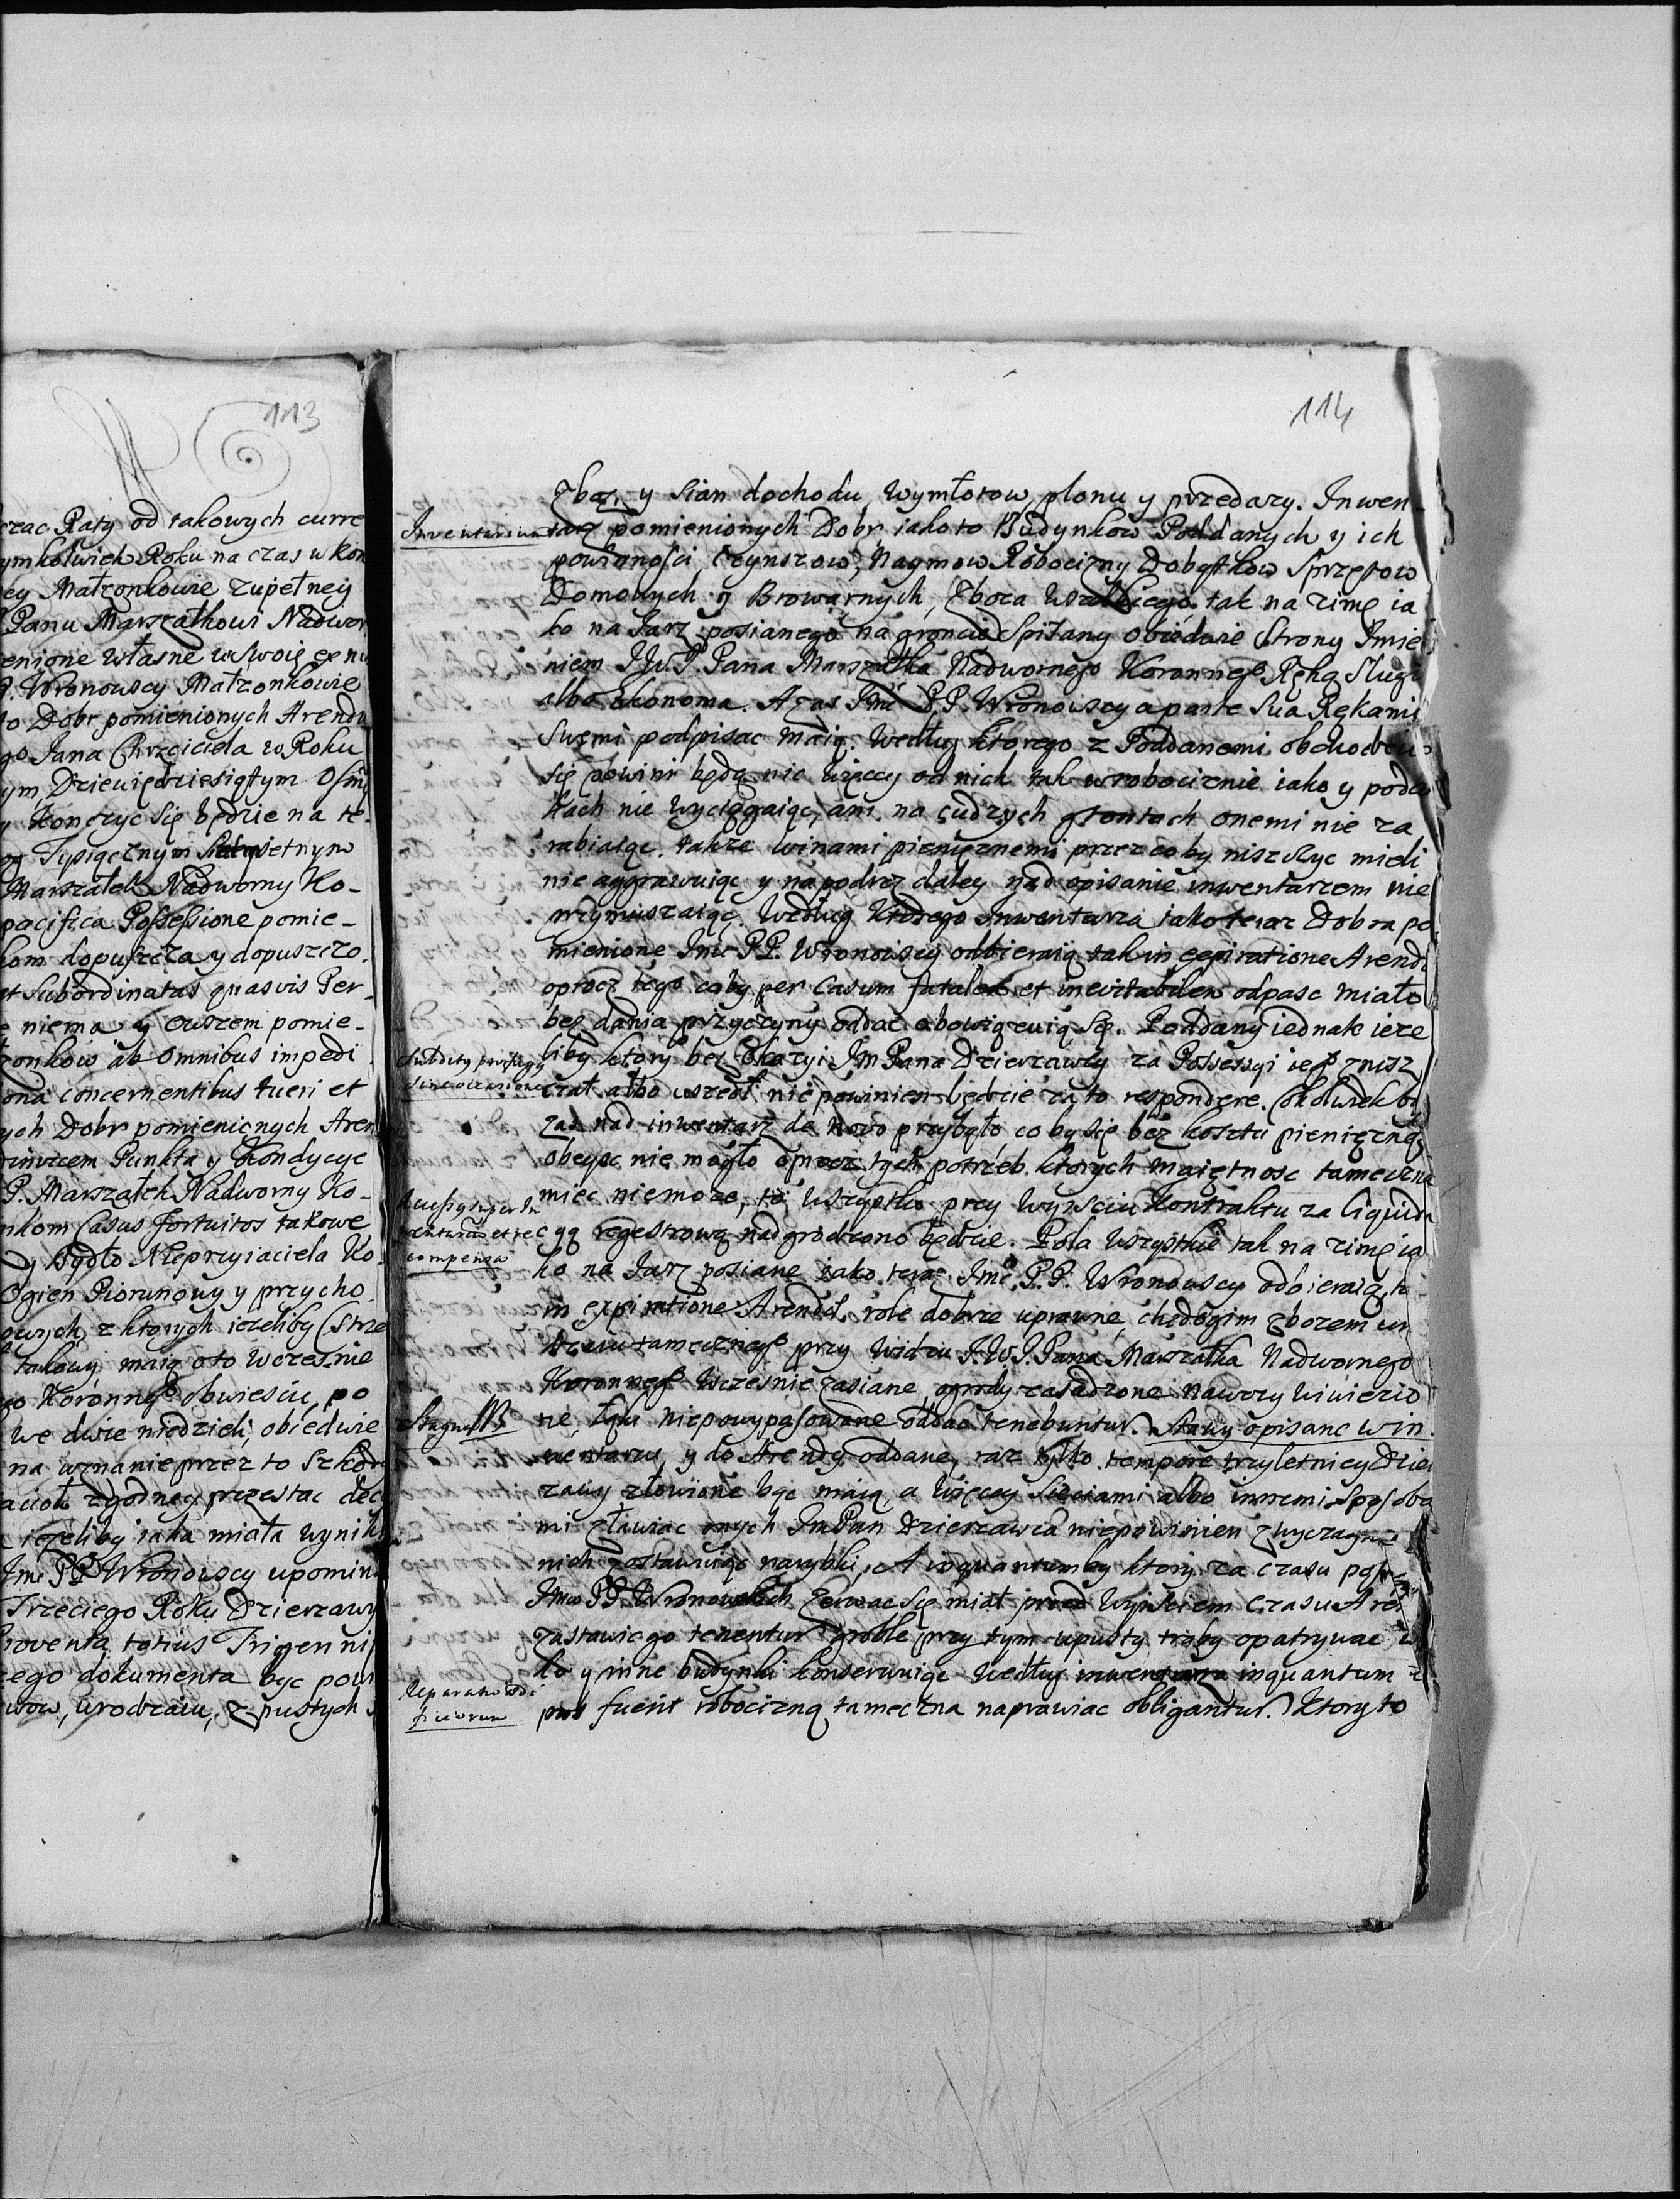 113
czac Raty od takowych curre
ymkolwiek Roku na czas w kon
ey Małzonkowie zupełney
Panu Marszałkowi Nadwor
enione własne w swoię
P. Wronowscy Małzonkowie
to Dobr pomienionych Arendu
go Jana Chrzciciela w Roku
ym, Dziewięcdziesiątym Osmy
y Konczyc się będzie na te
Tysiącznym setnym
Marszałek Nadworny Ko-
pacifica Possessione pomie-
kom dopuszcza y dopuszczo
et Subordinatas quasvis Per-
niema y owszem pomie-
zonkow ab omnibus impedi
ona concernentibus tueri et
ych Dobr pomienionych Aren
Punkta y Kondycye
P. Marszałek Nadworny Ko-
nkom Casus fortuitos takowe
y Bydło Nieprzyiaciela Ko
Ogien Piorunowy y przycho
owych, z ktorych iezeliby (strze
takowy, maią oto wczesnie
go Koronne° obwiescic, po
we dwie niedzieli, obiedwie
na uznanie przez to Szkody
aciołi zgodney przestac dec
iezeliby iaka miała wynik
Jmc PP Wronowscy upomin
Trzeciego Roku Dzierzawy
Proventa totius Trigenni
ego dokumenta byc pow
wow, urodzaiu, z pustych
114
Zboz, y Sian dochodu, wymłotow, plonu y przedazy. Inwen-
Inventarium
tarz pomienionych Dobr, iako to Budynkow Poddanych y ich
powinnosci, Czynszow, Naymow Robocizny Dobytkow Sprzętow
Domowych y Browarnych, Zboza wszelkiego tak na zimę ia
ko na Jarz posianego na gruncie Spisany obiedwie Strony Jmie
niem J.W.J. Pana Marszałka Nadwornego Koronneg° Ręką Sługi
albo Ekonoma. A zas Jmć PP. Wronowscy a parte Sua Rękami
Swemi podpisac maią. Według ktorego z Poddanemi obchodzic
się powinni będą nic więcey od nich tak w robociznie iako y poda
tkach nie wyciągaiąc, ani na cudzych gruntach onemi nie za
rabiaiąc. także winami pieniężnemi przez coby niszczyc mieli
nie aggrawuiąc y na podroz daley nad opisanie inwentarzem nie
przymuszaiąc. Według ktorego Inwentarza iako teraz Dobra po
mienione Jmc PP. Wronowscy odbieraią tak in expiratione Arendy
oprocz tego coby per Casum fatalem et inevitabilem odpasc miało
bez dania przyczyny oddac obowiązuią się. Poddany iednak ieze
Subditus profugus
sine occasione
liby ktory bez okazyi Jm Pana Dzierzawcy za Possessyi ieg° znisz
czał albo uszedł nie powinien będzie za to respondere. Cokolwiek by
zas nad inwentarz de novo przybyło co by się bez kosztu pieniężnego
obeysc nie mogło oprocz tych potrzeb ktorych maiętnosc tameczna
miec niemoze, to wszystko przy wyisciu Kontraktu za liquida
compensa
cyą regestrową nadgrodzono będzie. Pola wszystkie tak na zimę ia
ko na Jarz posiane iako teraz Jmc P.P. Wronowscy odbieraią, ta
in expiratione Arendy role dobrze uprawne, chędogim zbozem ur
dzaiu tameczneg° przy widzeniu J.W.J. Pana Marszałka Nadwornego
Koronneg° wczesnie zasiane, ogrody zasadzone nawozy wywiezio
Stagna NB
ne, łąki niepowypasowane oddac tenebuntur. Stawy opisane w in
wentarzu, y do Arendy oddane, raz tylko tempore trzyletniey Dzier
zawy złowione byc maią, a więcey Sieciami albo innemi Sposoba
mi zławiac onych Jm Pan Dzierzawca niepowinien
nich zostawuiąc narybki. A in quantumby ktory za czasu poss
Jmc PP. Wronowskich zerwac się miał przed wyisciem czasu Aren
zastawic go tenentur groble przy tym upusty trąby opatrywac
Reparatio aedi
ficiorum
ko y inne budynki konserwuiąc według inwentarza inquantum
fuerit robocizną tameczną naprawiac obligantur. Ktory to